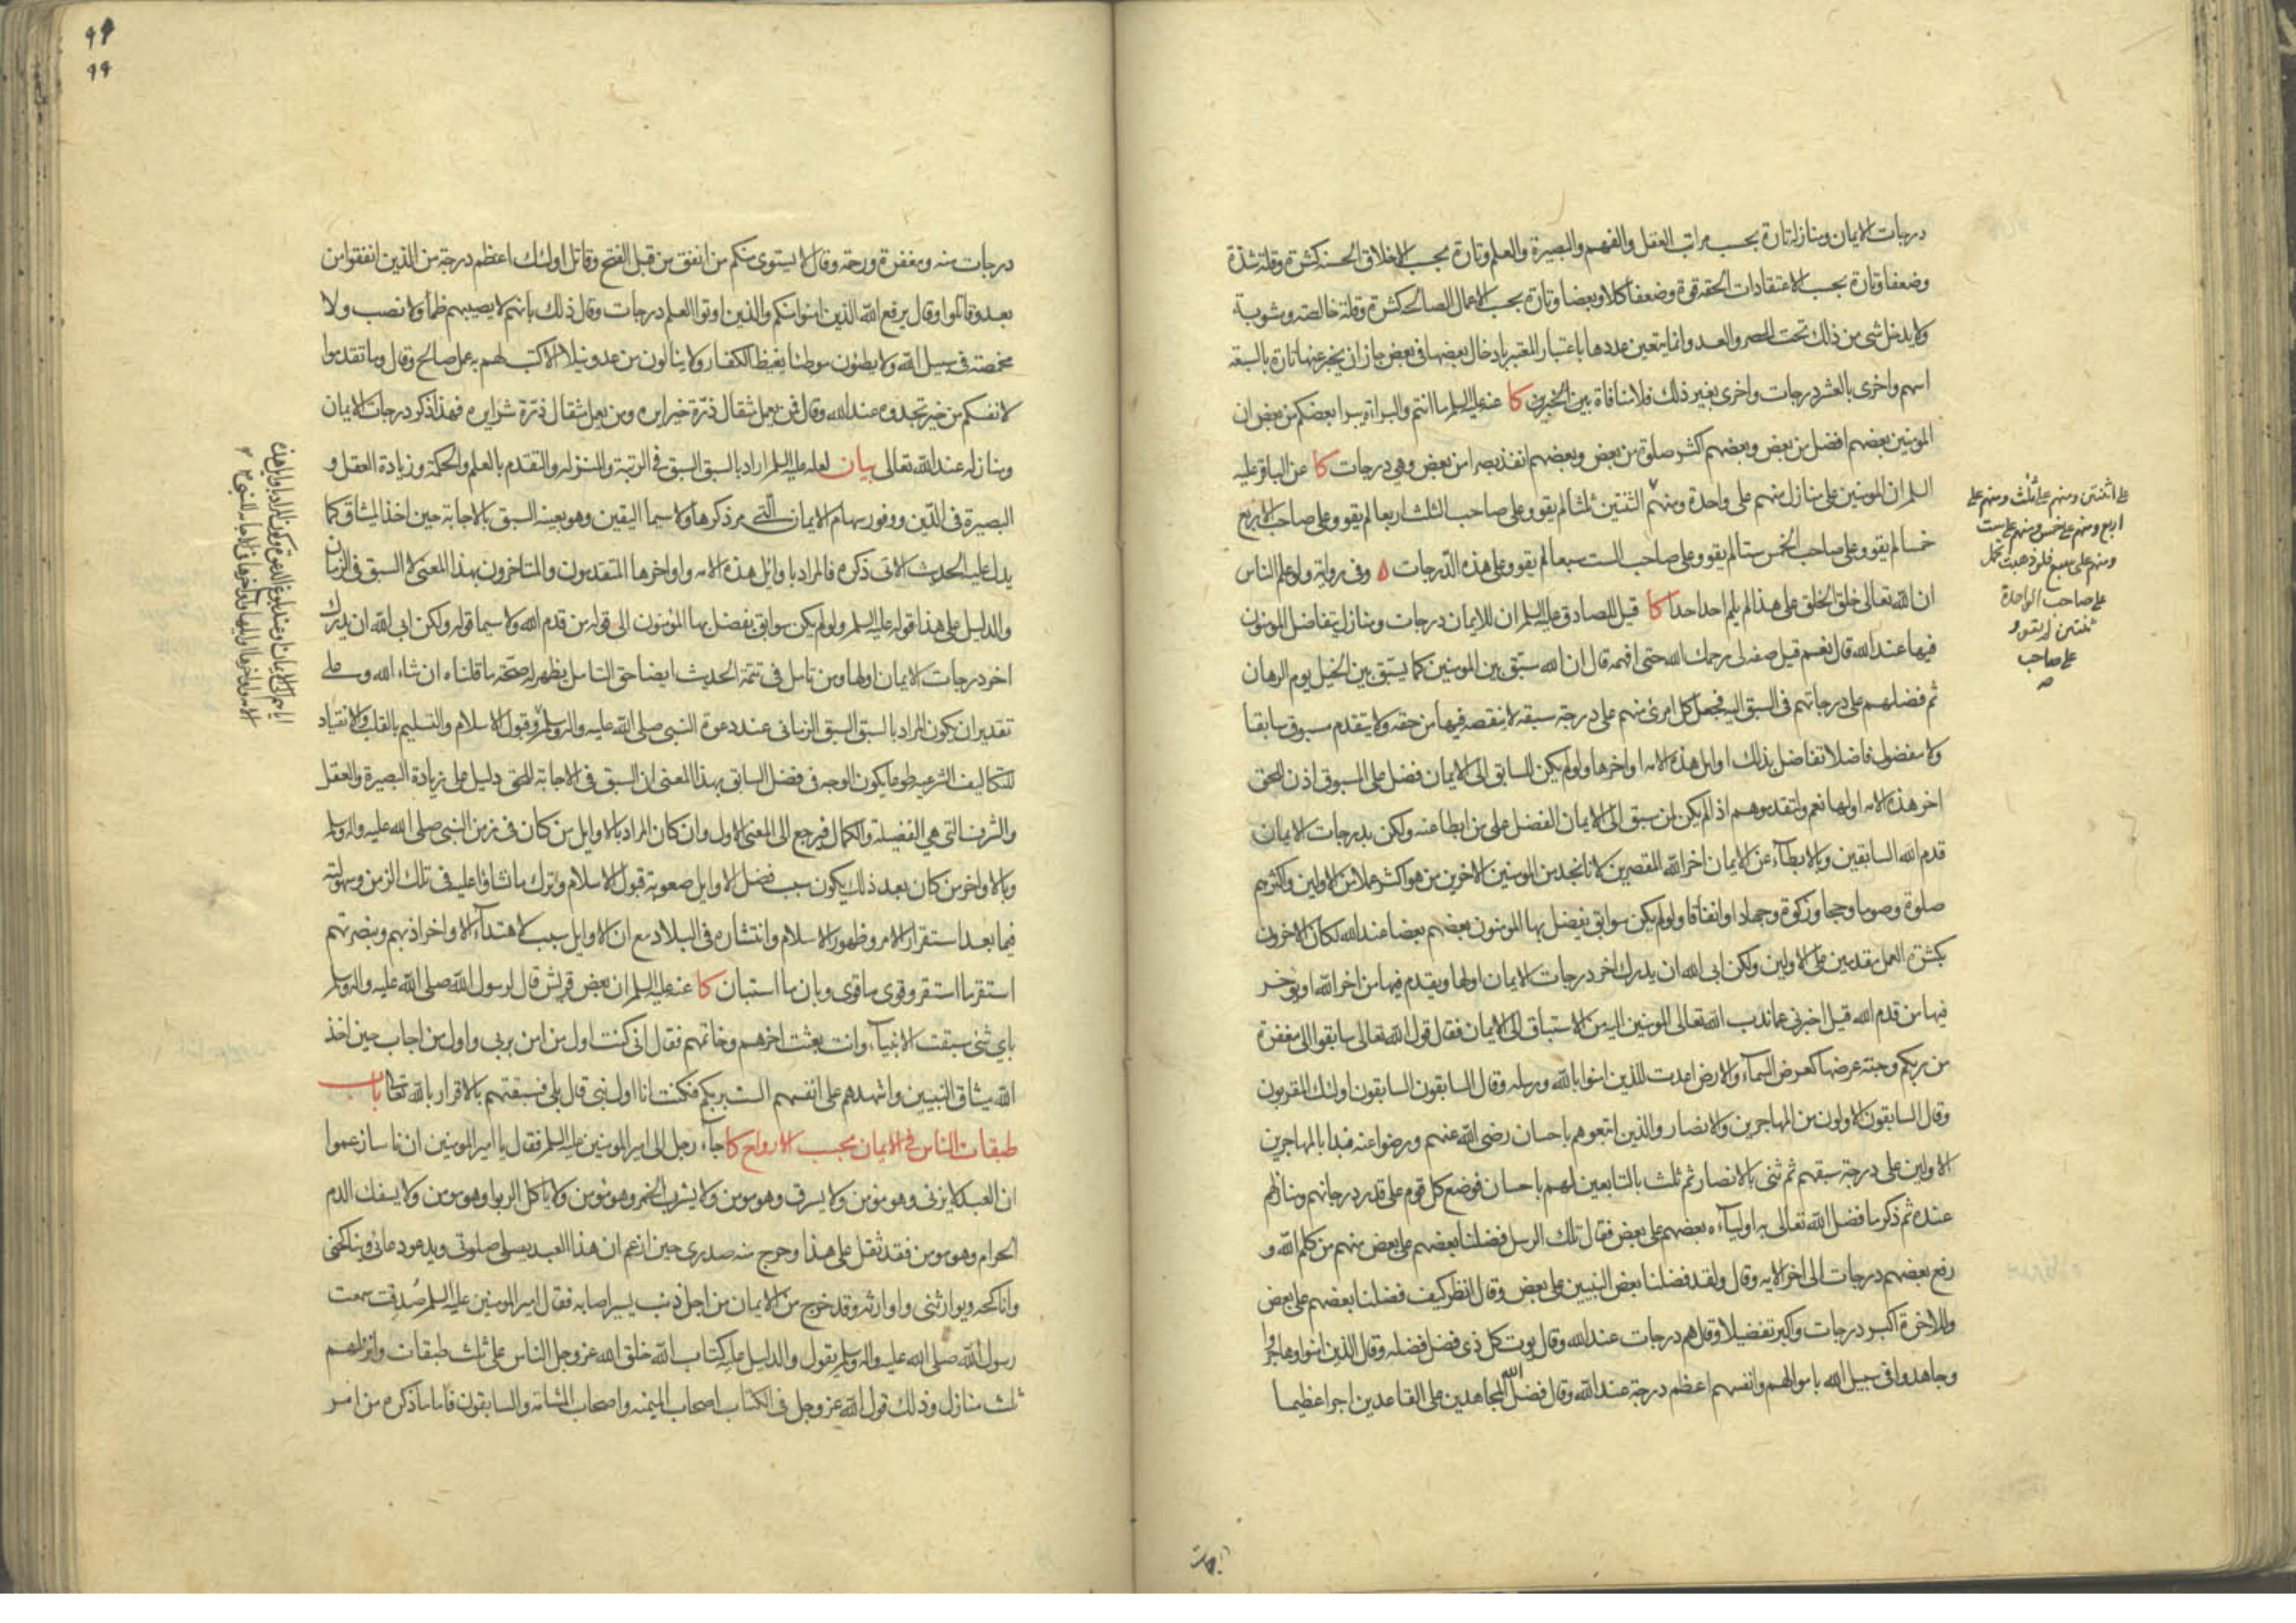 درجات الايمان ومنازله تارة بحسب مراتب العقل والفهم والبصيرة والعلم وتارة بحسب الاخلاق الحسنه كثرة وقلة شدة
وضعفا وتارة بحسب الاعتقادات الحقه قوة وضعفا كلا وبعضا وتارة بحسب الاعمال الصالحه كثرة وقلة خالصته ومشوبة
ولا يدخل شى من ذلك تحت الحصر والعد وانما يتعين عددها باعتبار المعتبر بادخال بعضها فى بعض جاز ان يخبر عنها تارة بالسبعة
اسهم واخرى بالعشر درجات واخرى بغير ذلك فلا منافاة بين الخبرين كا عنه عليه السلم ما انتم والبراءة يبرا بعضكم من بعض ان
المومنين بعضهم افضل من بعض وبعضهم اكثر صلوة من بعض وبعضهم انفذ بصرا من بعض وهي درجات كا عن الباقر عليه
السلم ان المومنين على منازل منهم على واحدة ومنهم الثنتين ثلثا لم يقو وعلى صاحب الثلث اربعا لم يقو وعلى صاحب الاربع
خمسا لم يقو وعلى صاحب الخمس ستا لم يقو وعلى صاحب الست سبعا لم يقو وعلى هذه الدرجات ٥ وفى رواية ولو علم الناس
ان الله تعالى خلق الخلق على هذا لم يلم احد احدا كا قيل للصادق عليه السلم ان للايمان درجات ومنازل يتفاضل المومنون
فيها عند الله قال نعم قيل صفه لى رحمك الله حتى افهمه قال ان الله سبق بين المومنين كما يسبق بين الخيل يوم الرهان
ثم فضلهم على درجاتهم فى السبق اليه فجعل كل امرئ منهم على درجة سبقه لا ينقصه فيها من حقه ولا يتقدم مسبوق سابقا
ولا مفضول فاضلا تفاضل بذلك اوايل هذه الامه اواخرها ولو لم يكن للسابق الى الايمان فضل على المسبوق اذن للحق
اخر هذه الامه اولها نعم ولتقدموهم اذا لم يكن لمن سبق الى الايمان الفضل على من ابطا عنه ولكن بدرجات الايمان
قدم الله السابقين وبالابطاء عن الايمان اخر الله المقصرين لانا نجد من المومنين الاخرين من هو اكثر عملا من الاولين واكثرهم
صلوة وصوما وحجا وزكوة وجهادا وانفاقا ولو لم يكن سوابق يفضل بها المومنون بعضهم بعضا عند الله لكان الاخرون
بكثرة العمل مقدمين على الاولين ولكن ابى الله ان يدرك اخر درجات الايمان اولها ويقدم فيها من اخر الله او يوخر
فيها من قدم الله قيل اخبرنى عما ندب الله تعالى المومنين اليه من الاستباق الى الايمان فقال قول الله تعالى سابقوا الى مغفرة
من ربكم وجنة عرضها كعرض السماء والارض اعدت للذين امنوا بالله ورسله وقال السابقون السابقون اولئك المقربون
وقال السابقون الاولون من المهاجرين والانصار والذين اتبعوهم باحسان رضى الله عنهم ورضوا عنه فبدا بالمهاجرين
الاولين على درجة سبقهم ثم ثنى بالانصار ثم ثلث بالتابعين لهم باحسان فوضع كل قوم على قدر درجاتهم ومنازلهم
عنده ثم ذكر ما فضل الله تعالى به اولياءه بعضهم على بعض فقال تلك الرسل فضلنا بعضهم على بعض منهم من كلم الله و
رفع بعضهم درجات الى اخر الايه وقال ولقد فضلنا بعض النبيين على بعض وقال انظر كيف فضلنا بعضهم على بعض
وللاخرة اكبر درجات واكبر تفضيلا وقال هم درجات عند الله وقال يوت كل ذى فضل فضله وقال الذين امنوا وهاجروا
وجاهدوا فى سبيل الله باموالهم وانفسهم اعظم درجة عند الله وقال فضل الله المجاهدين على القاعدين اجرا عظيما
على اثنتين ومنهم على ثلث ومنهم على
اربع ومنهم على خمس ومنهم على ست
ومنهم على سبع فلو ذهبت تحمل
على صاحب الواحدة
ثنتين لم يقو و
على صاحب
درجات منه ومغفرة ورحمة وقال لا يستوى منكم من انفق من قبل الفتح وقاتل اولئك اعظم درجة من الذين انفقوا من
بعد وقاتلوا وقال يرفع الله الذين امنوا منكم والذين اوتوا العلم درجات وقال ذلك بانهم لا يصيبهم ظمأ ولا نصب ولا
مخمصة فى سبيل الله ولا يطئون موطئا يغيظ الكفار ولا ينالون من عدو نيلا الا كتب لهم به عمل صالح وقال وما تقدموا
لانفسكم من خير تجدوه عند الله وقال فمن يعمل مثقال ذرة خيرا يره ومن يعمل مثقال ذرة شرا يره فهذا ذكر درجات الايمان
ومنازله عند الله تعالى بيان لعله عليه السلم اراد بالسبق السبق فى الرتبة والمنزله والتقدم بالعلم والحكمة وزيادة العقل و
البصيرة فى الدين ووفور سهام الايمان التى مر ذكرها ولا سيما اليقين وهو بعينه السبق بالاجابة حين اخذ الميثاق كما
يدل عليه الحديث الاتى ذكره فالمراد باوايل هذه الامه واواخرها المتقدمون والمتاخرون بهذا المعنى لا السبق فى الزمان
والدليل على هذا قوله عليه السلم ولو لم يكن سوابق تفضل بها المومنون الى قوله من قدم الله ولا سيما قوله ولكن ابى الله ان يدرك
اخر درجات الايمان اولها ومن تامل فى تتمة الحديث ايضا حق التامل يظهر له صحة ما قلناه ان شاء الله وعلى
تقدير ان يكون المراد بالسبق السبق الزمانى عند دعوة النبى صلى الله عليه واله وسلم وقبول الاسلام والتسليم بالقلب والانقياد
للتكاليف الشرعيه طوعا يكون الوجه فى فضل السابق بهذا المعنى ان السبق فى الاجابة للحق دليل على زيادة البصيرة والعقل
والشرف التى هي الفضيلة والكمال فيرجع الى المعنى الاول وان كان المراد بالاوايل من كان فى زمن النبى صلى الله عليه واله وسلم
وبالاواخر من كان بعد ذلك يكون سبب فضل الاوايل صعوبة قبول الاسلام وترك ما نشاوا عليه فى تلك الزمن وسهولته
فيما بعد استقرار الامر وظهور الاسلام وانتشاره فى البلاد مع ان الاوايل سبب لاهتداء الاواخر اذ بهم وبنصرتهم
استقر ما استقر وقوى ما قوى وبان ما استبان كا عنه عليه السلم ان بعض قريش قال لرسول الله صلى الله عليه واله وسلم
باي شئ سبقت الانبياء وانت بعثت اخرهم وخاتمهم فقال انى كنت اول من امن بربى واول من اجاب حين اخذ
الله ميثاق النبيين واشهدهم على انفسهم الست بربكم فكنت انا اول نبى قال بلى فسبقتهم بالاقرار بالله تعالى باب
طبقات الناس فى الايمان بحسب الارواح كا جاء رجل الى امير المومنين عليه السلم فقال يا امير المومنين ان ناسا زعموا
ان العبد لا يزنى وهو مؤمن ولا يسرق وهو مومن ولا يشرب الخمر وهو مؤمن ولا ياكل الربا وهو مومن ولا يسفك الدم
الحرام وهو مومن فقد ثقل على هذا وحرج منه صدرى حين ازعم ان هذا العبد يصلى صلوتى ويدعو دعائى ويناكحنى
واناكحه ويوارثنى واوارثه وقد خرج من الايمان من اجل ذنب يسير اصابه فقال امير المومنين عليه السلم صدقت سمعت
رسول الله صلى الله عليه واله وسلم يقول والدليل عليه كتاب الله خلق الله عز وجل الناس على ثلث طبقات وانزلهم
ثلث منازل وذلك قول الله عز وجل فى الكتاب اصحاب الميمنه واصحاب المشئمه والسابقون فاما ما ذكره من امر